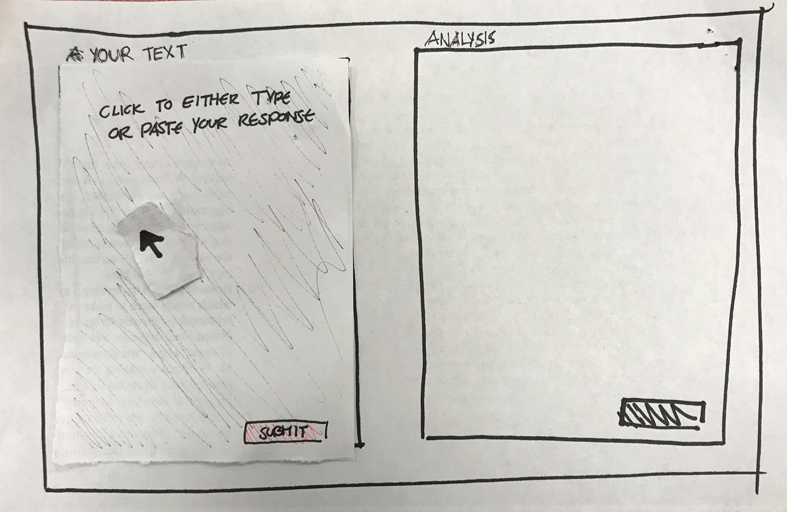 YOUR TEXT
CLICK TO EITHER TYPE
OR PASTE YOUR RESPONSE
SUBMIT
ANALYSIS